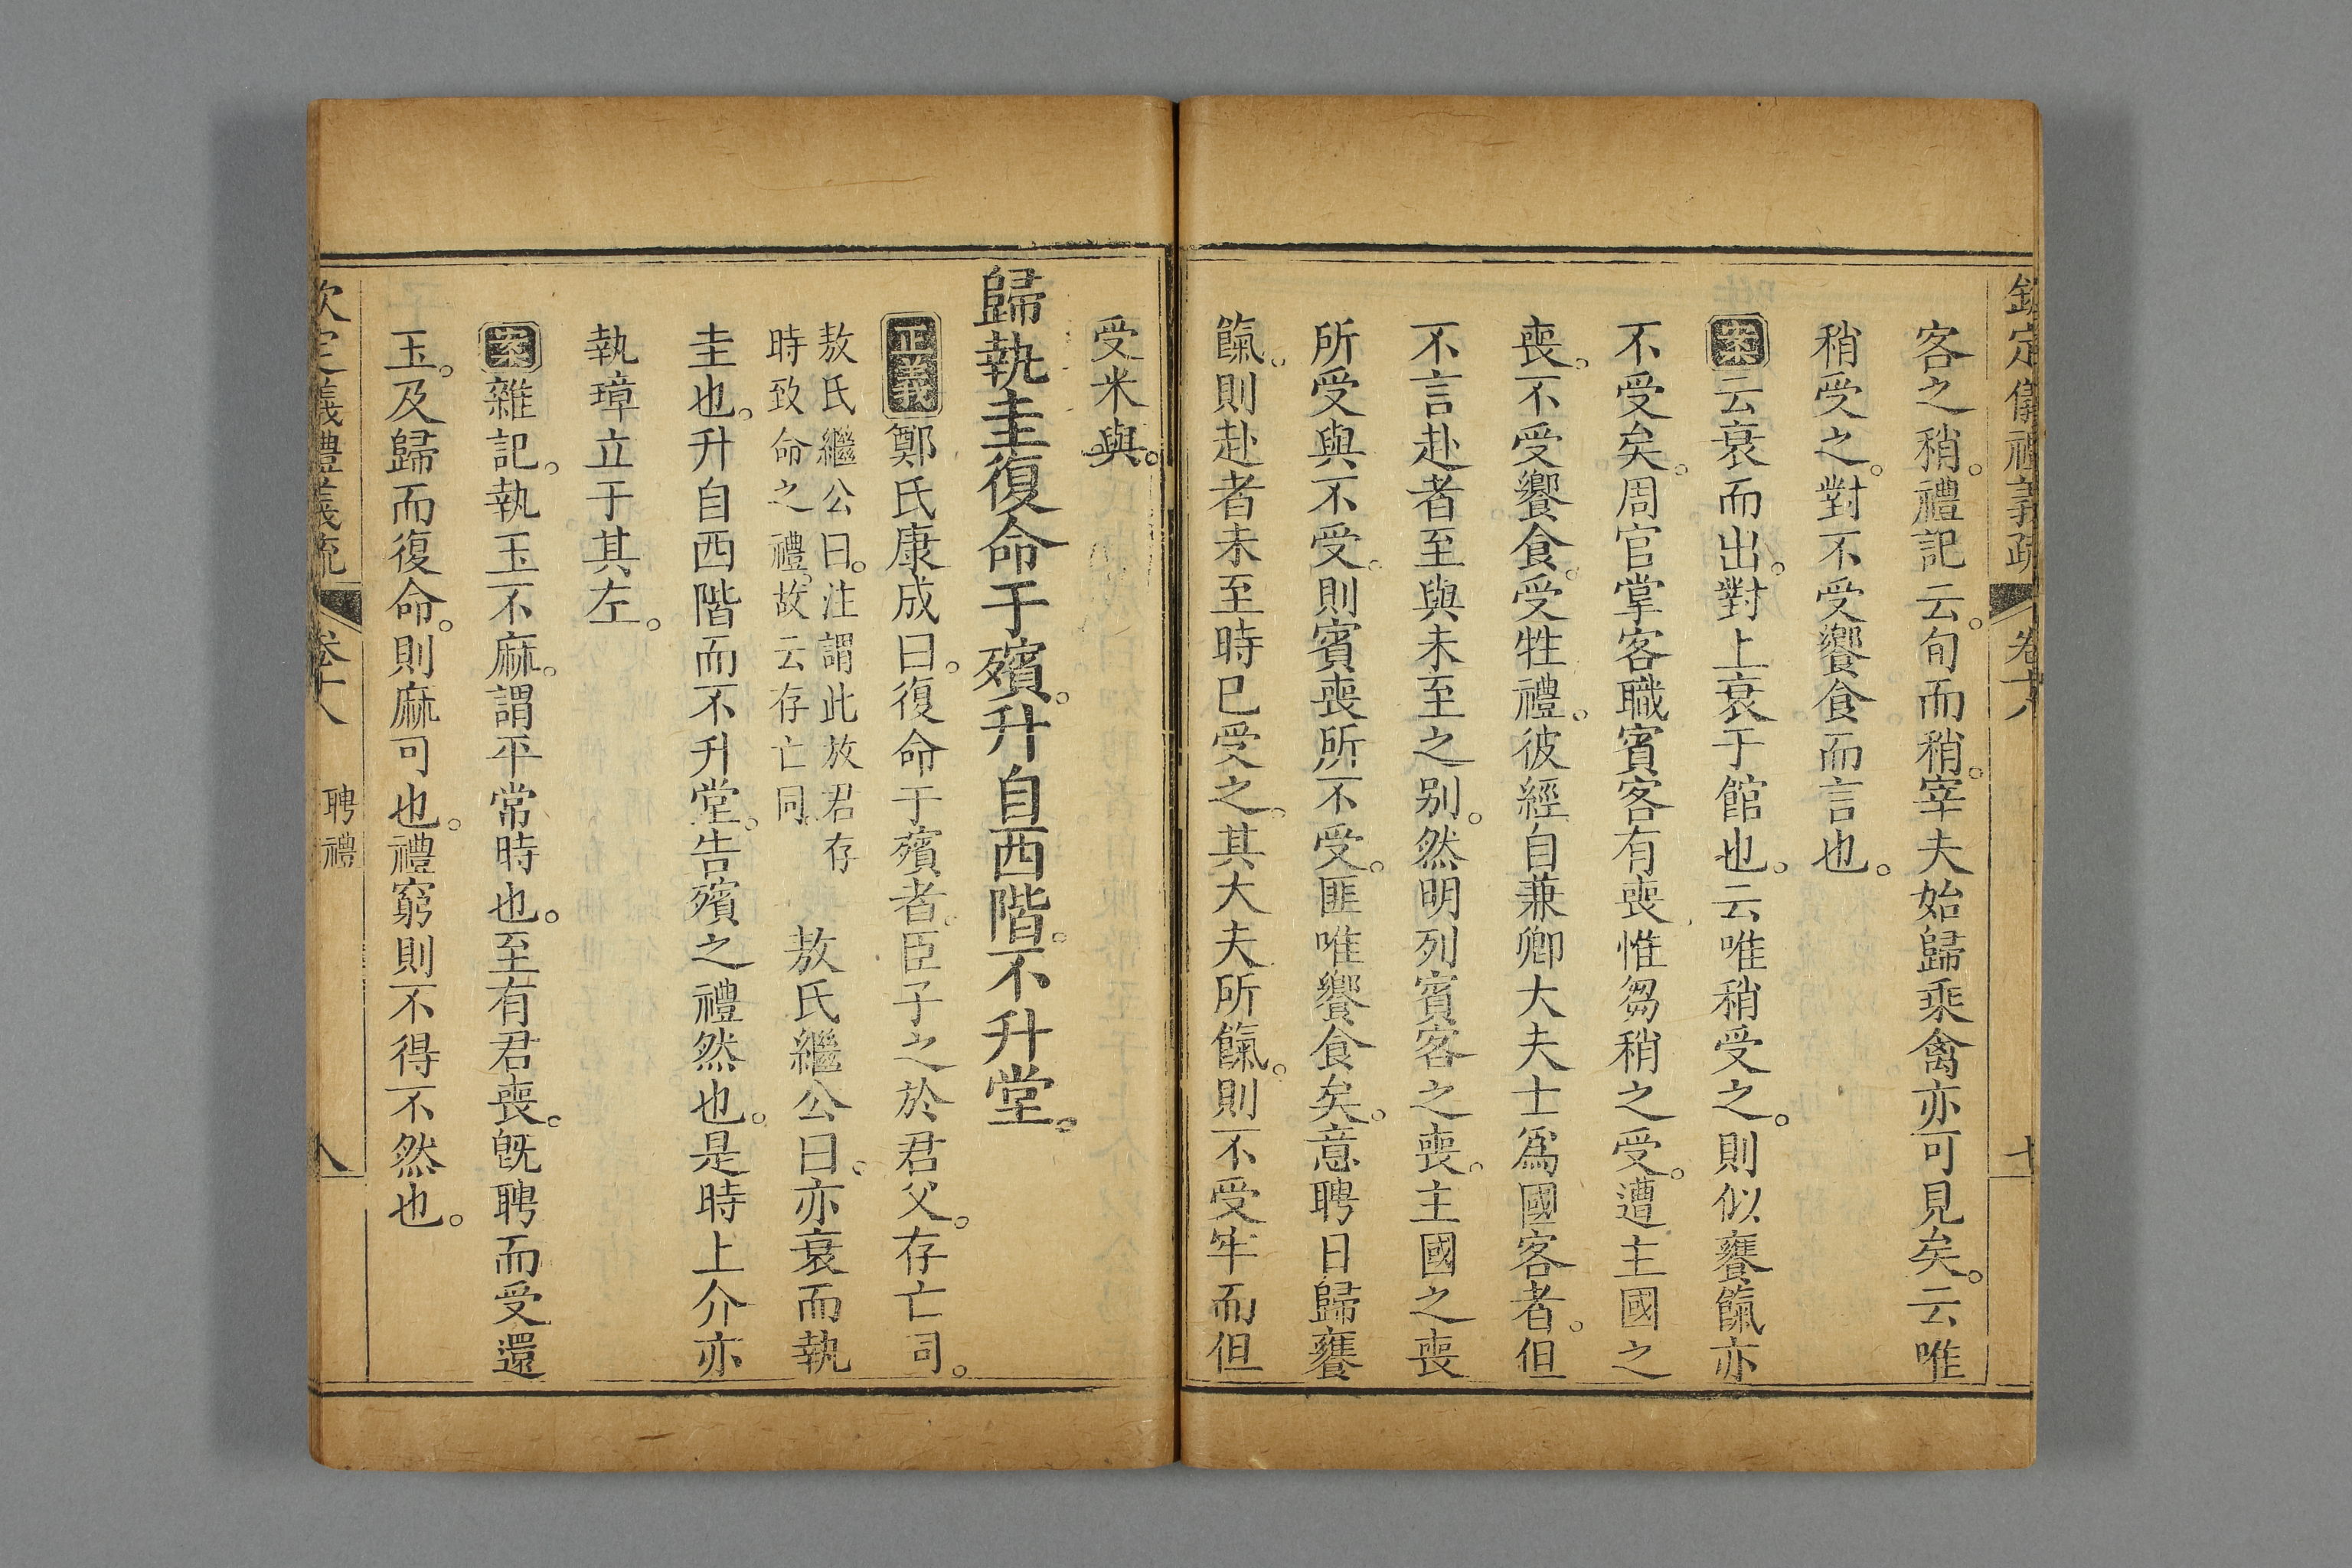 欽定儀禮義疏 卷十八 七
客之稍。禮記云。旬而稍。宰夫始歸乘禽亦可見矣。云唯
稍受之。對不受饗食而言也。
案云衰而出。對上衰于館也。云唯稍受之。則似饔餼亦
不受矣。周官掌客職賓客有喪惟芻稍之受。遭主國之
喪。不受饗食。受牲禮。彼經自兼卿大夫士爲國客者。但
不言赴者至與未至之别。然明列賓客之喪。主國之喪
所受與不受。則賓喪所不受。匪唯饗食矣。意聘日歸饔
餼。則赴者未至時已受之。其大夫所餼。則不受牢而但
受米與。
歸執圭復命于殯。升自西階。不升堂。
正義鄭氏康成曰。復命于殯者。臣子之於君父。存亡同。
敖氏繼公曰。注謂此放君存
時致命之禮。故云存亡同。
敖氏繼公曰。亦衰而執
圭也。升自西階而不升堂。告殯之禮然也。是時上介亦
執璋立于其左。
案雜記。執玉不麻。謂平常時也。至有君喪。旣聘而受還
玉。及歸而復命。則麻可也。禮窮則不得不然也。
欽定儀禮義疏 卷十八 聘禮 八